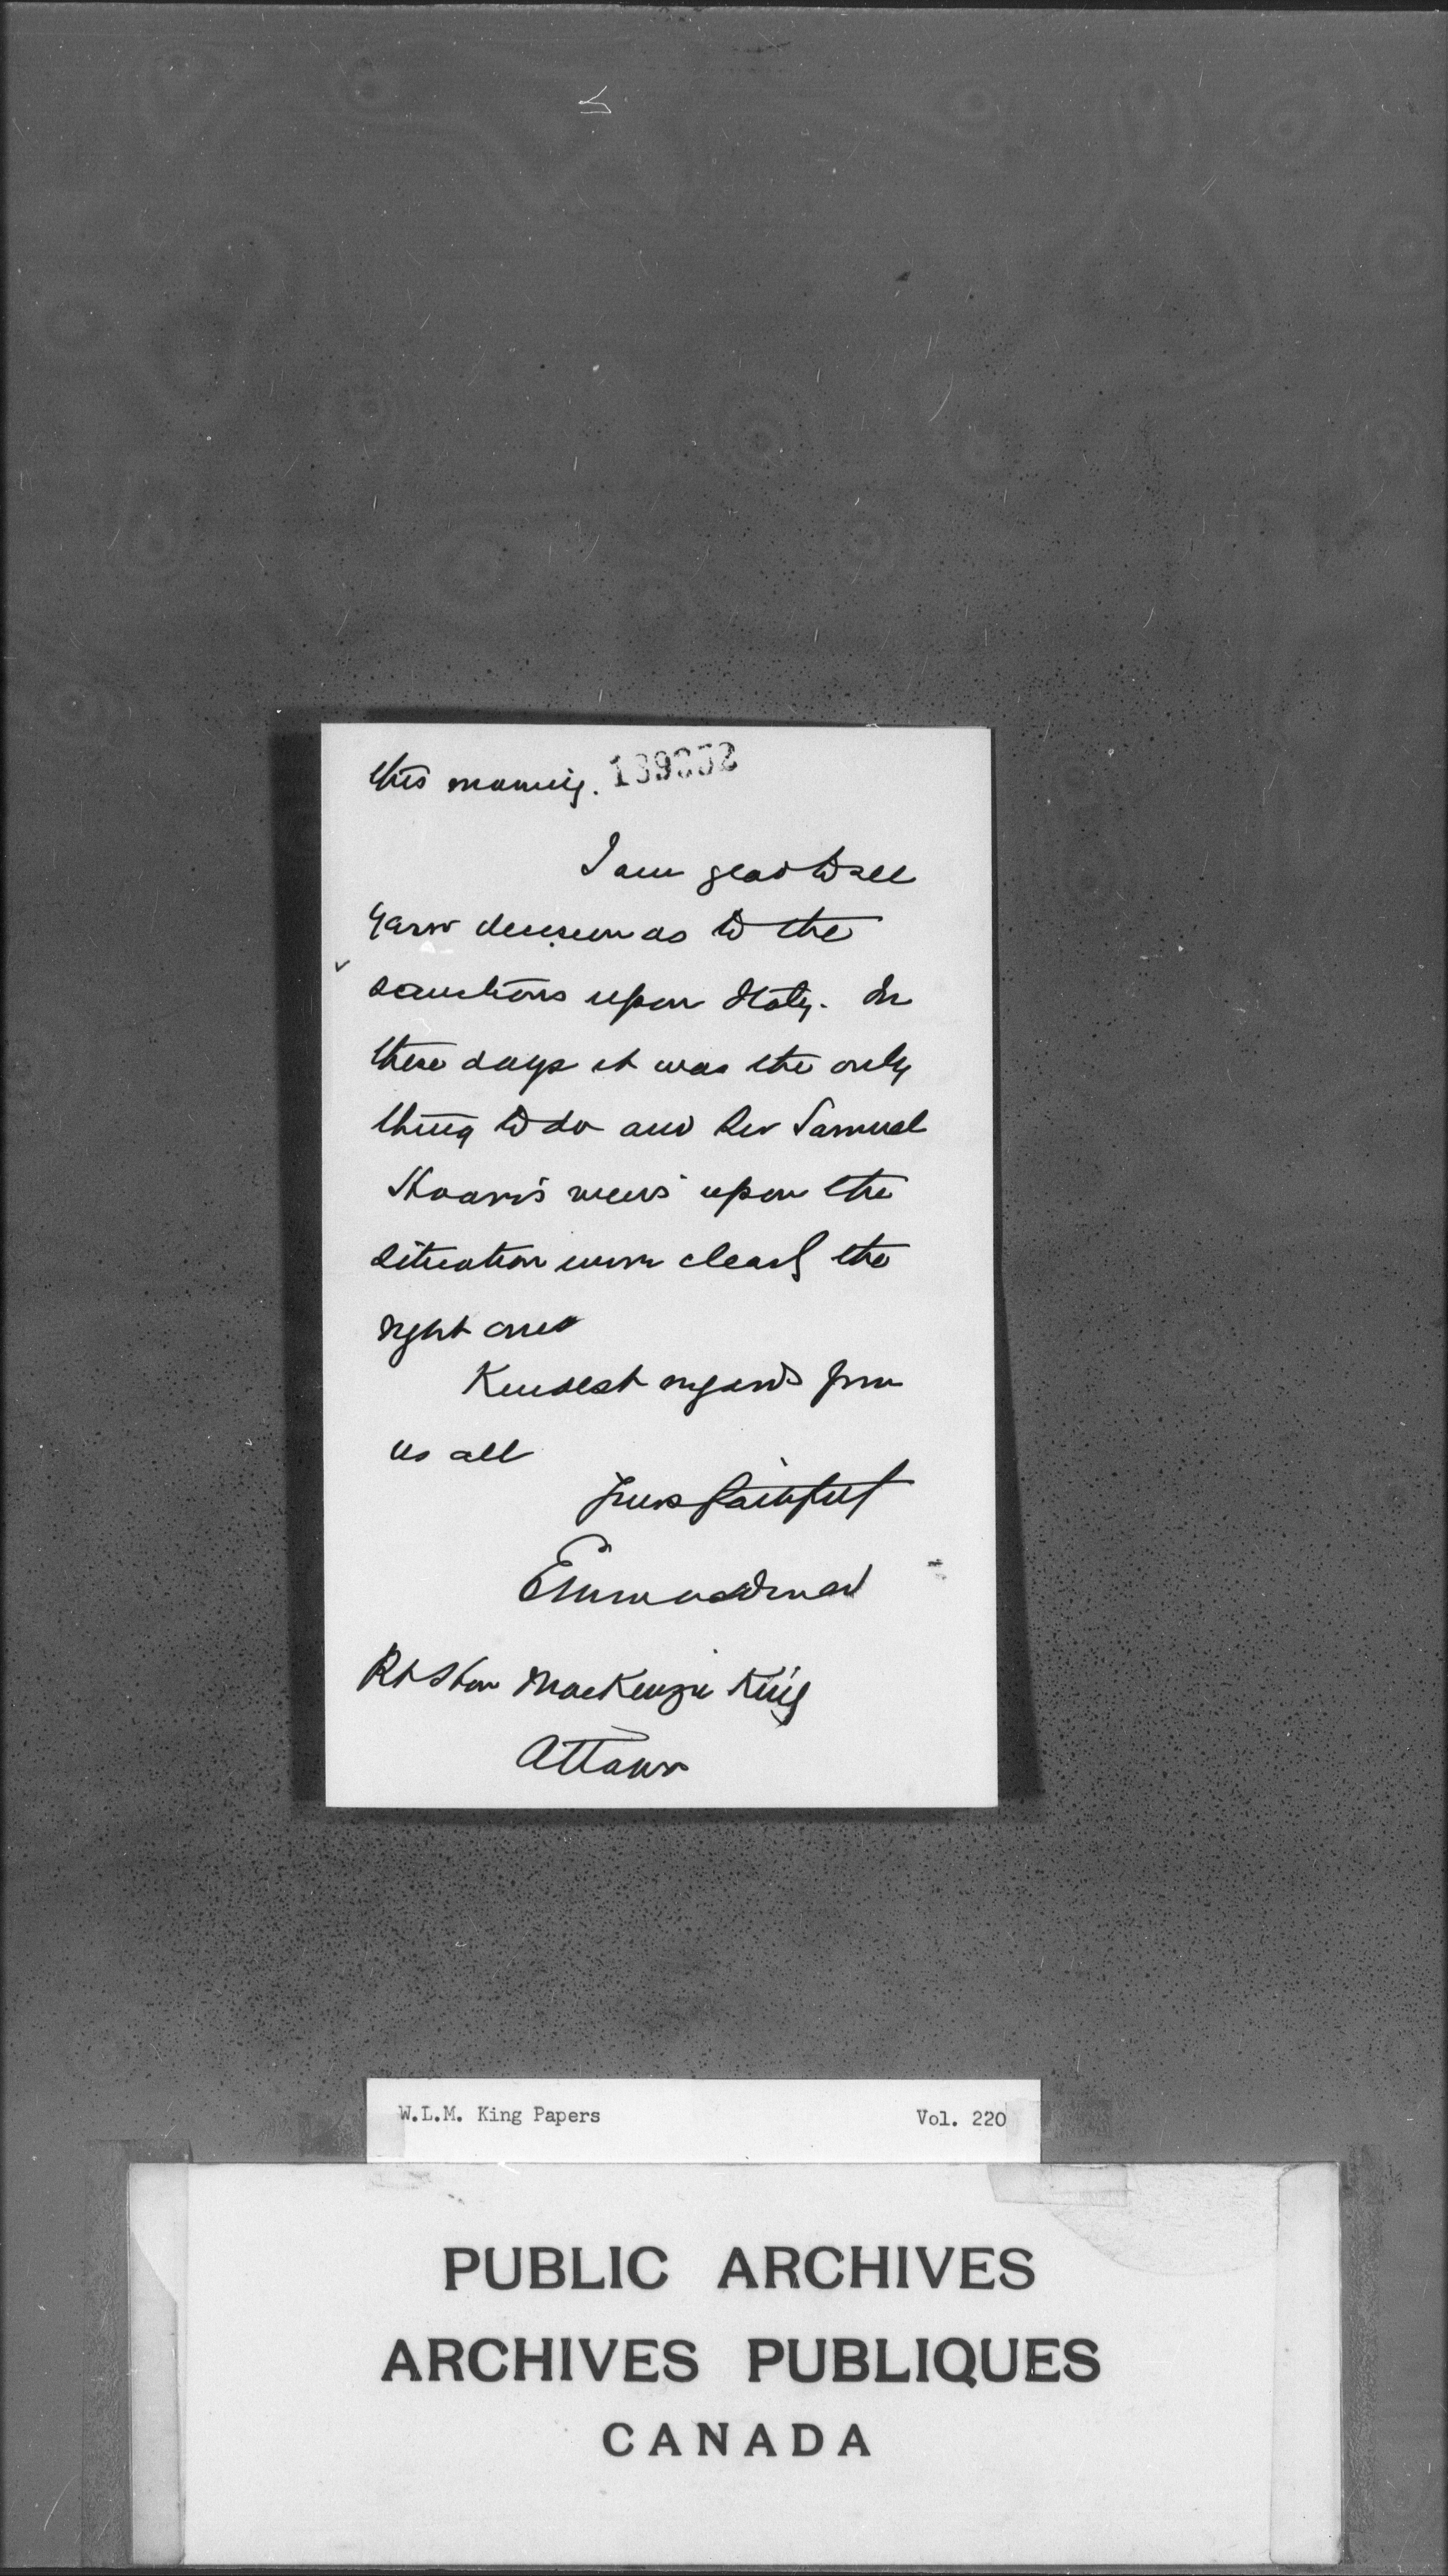 this morning. 189052
I am glad to see
your decision as to the
sanctions upon Italy. In
these days it was the only
thing to do and Sir Samuel
Hoare's views upon the
situation were clearly the
right ones
Kindest regards from
us all
Yours faithfully
Rt Hon MacKenzie King
Ottawa
W.L.M. King Papers Vol. 220
PUBLIC ARCHIVES
ARCHIVES PUBLIQUES
CANADA